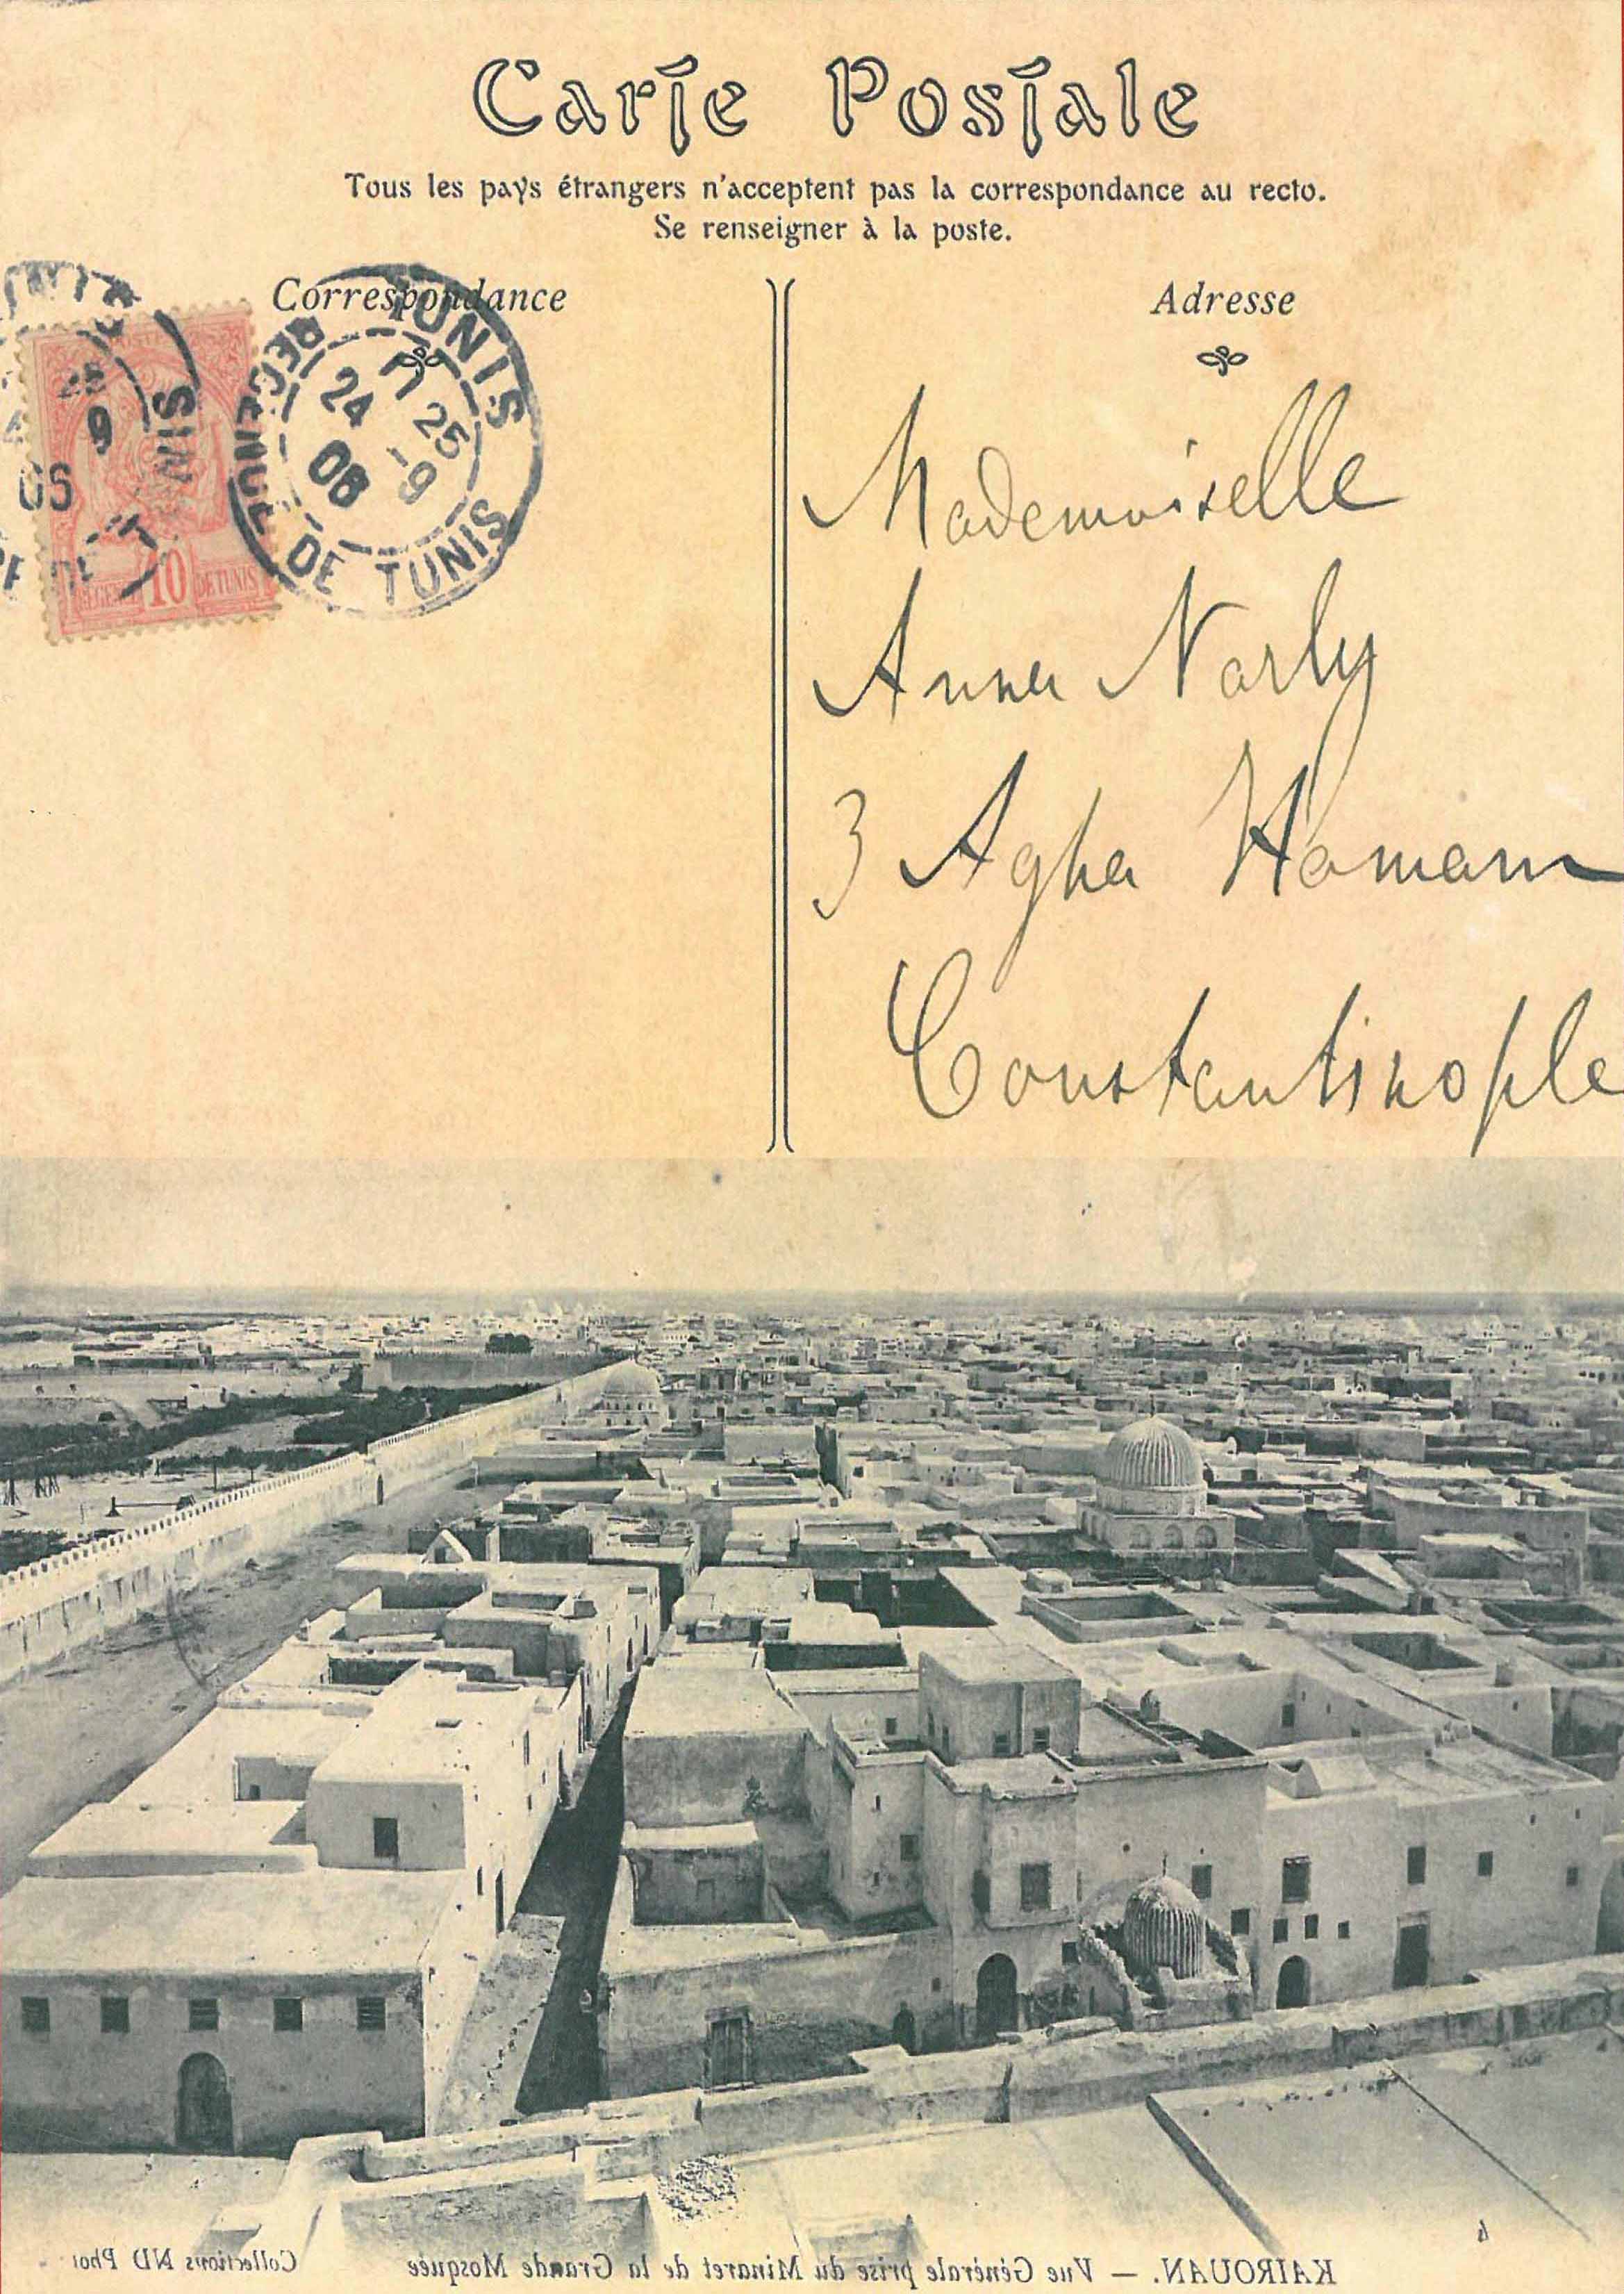 Carte Postale
Tous les pays étrangers n'acceptent pas la correspondance au recto.
Se renseigner à la poste.
Correspondance
Adresse
TUNIS
24
25
-9
08
REGENCE DE TUNIS
25
9
REGENCE 10 DE TUNIS
Mademoiselle
Anna Narly
3 Agha Hamam
Constantinople
4
KAIROUAN. — Vue Générale prise du Minaret de la Grande Mosquée
Collections ND Phot